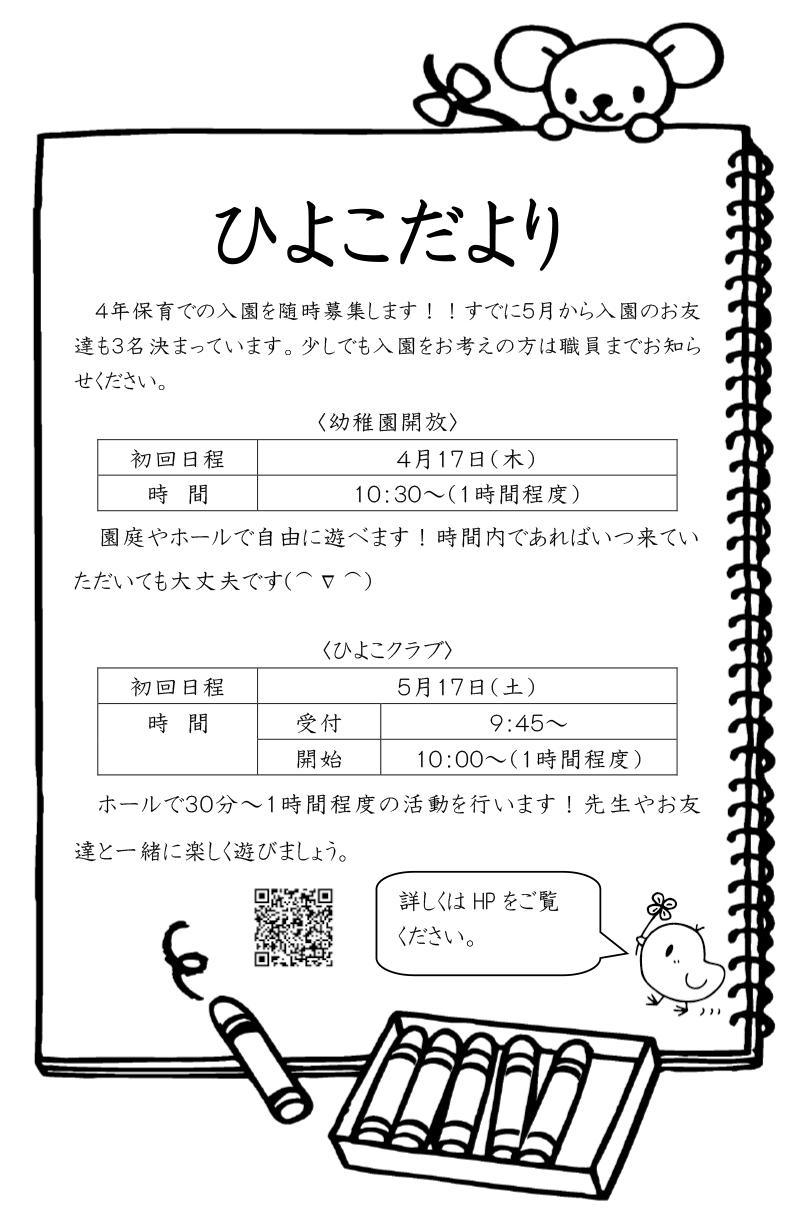 ひよこだより
４年保育での入園を随時募集します！！すでに５月から入園のお友
達も３名決まっています。少しでも入園をお考えの方は職員までお知ら
せください。
〈幼稚園開放〉
初回日程 ４月１７日（木）
時　間 １０：３０～（１時間程度）
園庭やホールで自由に遊べます！時間内であればいつ来てい
ただいても大丈夫です(⌒∇⌒)
〈ひよこクラブ〉
初回日程 ５月１７日（土）
時　間 受付 ９：４５～
開始 １０：００～（１時間程度）
ホールで３０分～１時間程度の活動を行います！先生やお友
達と一緒に楽しく遊びましょう。
詳しくは HP をご覧
ください。